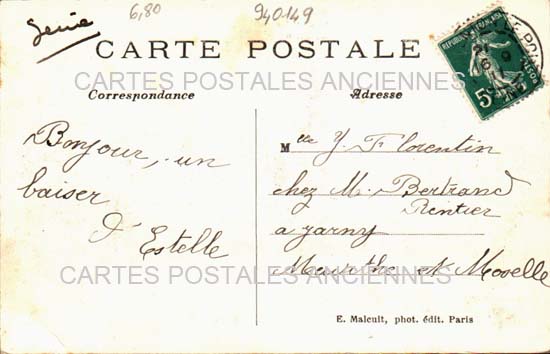 6,80
940149
CARTE POSTALE
CARTES POSTALES ANCIENNES
Correspondance
Adresse
RÉPUBLIQUE FRANÇAISE
POSTES
5c
Bonjour, un
baiser
d'Estelle
Mlle Y. Florentin
chez M. Bertrand
Rentier
a Jarny
Meurthe et Moselle
CARTES POSTALES ANCIENNES
E. Malcuit, phot. édit. Paris